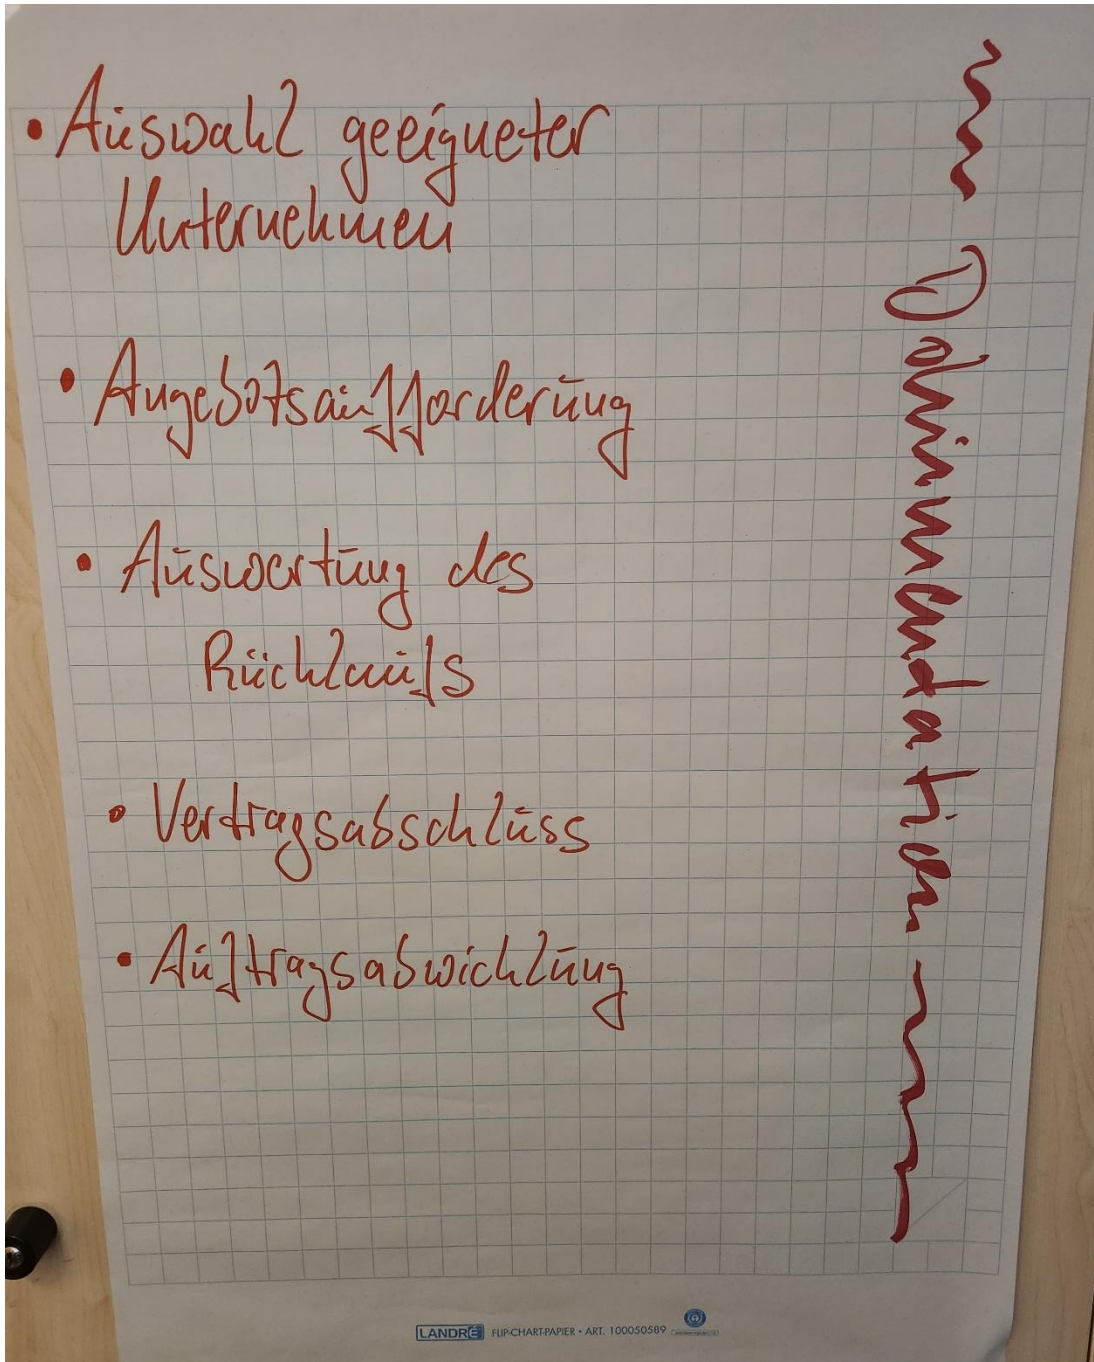 • Auswahl geeigneter
Unternehmen
• Angebotsaufforderung
• Auswertung des
Rücklaufs
• Vertragsabschluss
• Auftragsabwicklung
Dokumentation
LANDRÉ FLIP-CHART-PAPIER • ART. 100050589